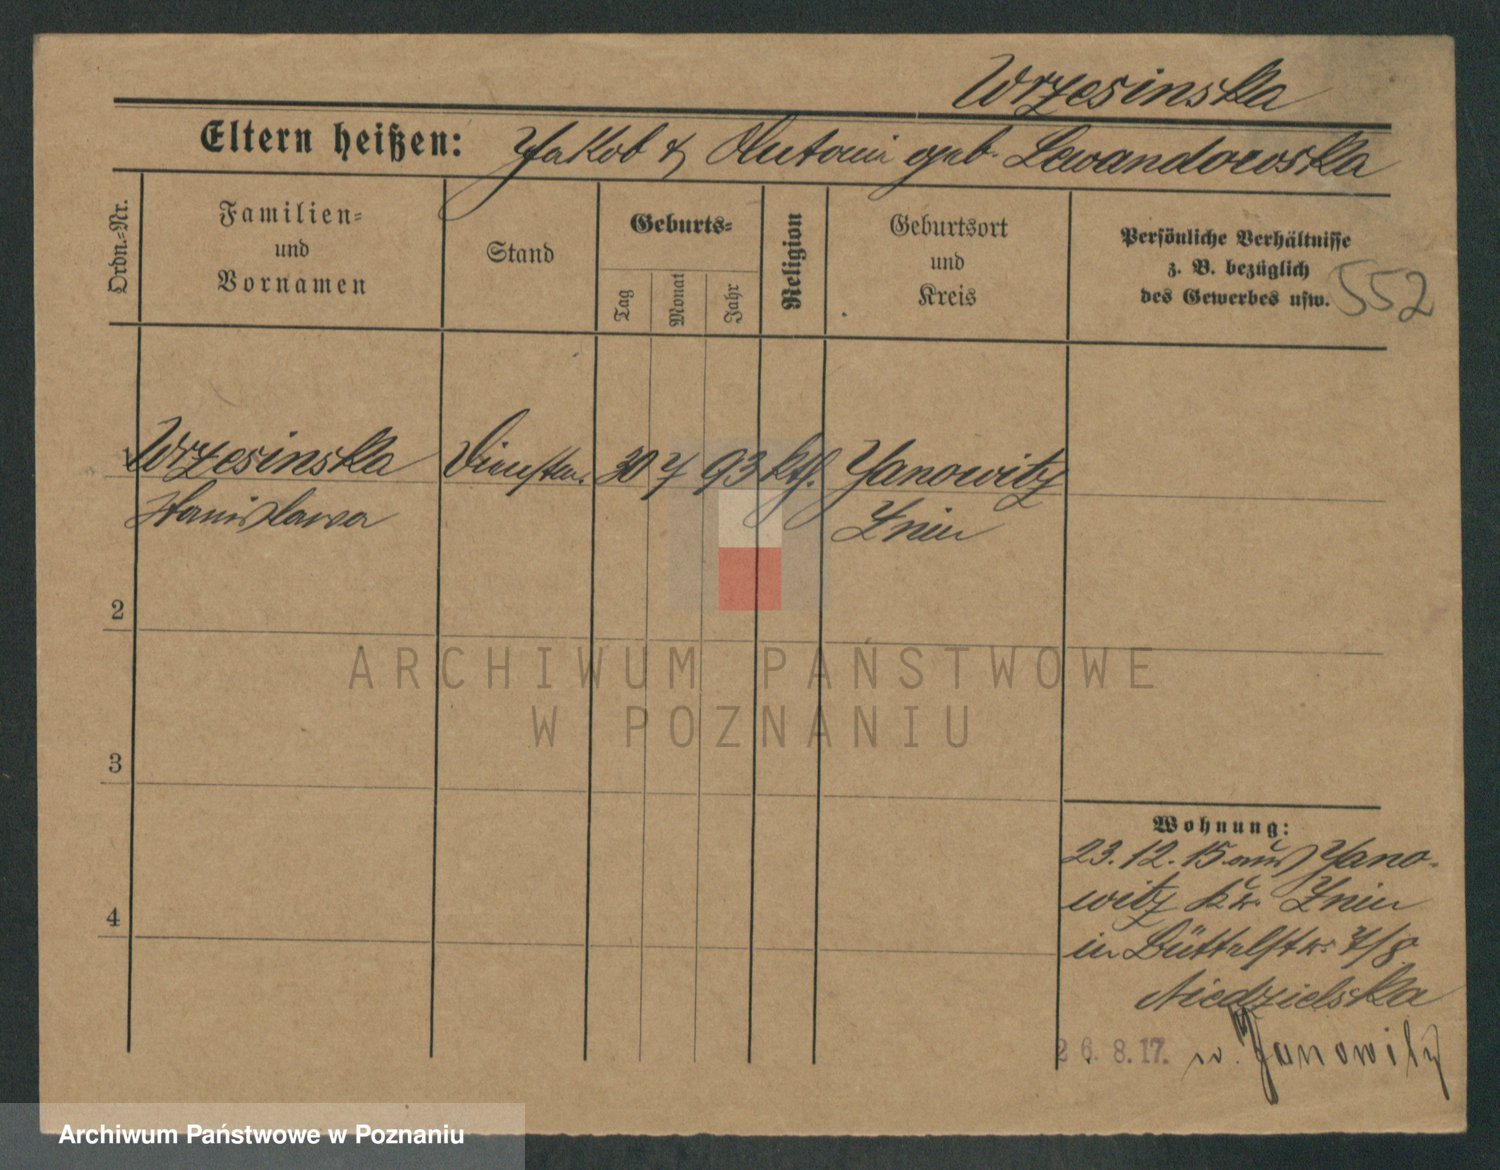 Wrzesinska
Eltern heißen: Jakob & Antonie geb. Lewandowska
Ordn.=Nr.
Familien=
und
Vornamen
Stand
Geburts=
Tag
Monat
Jahr
Religion
Geburtsort
und
Kreis
Persönliche Verhältnisse
z. B. bezüglich
des Gewerbes usw.
552
1 Wrzesinska 30 7 93 kth. Janowitz
Stanislawa Znin
2
3
4
Wohnung:
23.12.15 aus Jano-
witz Kr. Znin
in Büttelstr. 7/8
Niedzielska
26. 8. 17. n. Janowitz
ARCHIWUM PAŃSTWOWE
W POZNANIU
Archiwum Państwowe w Poznaniu